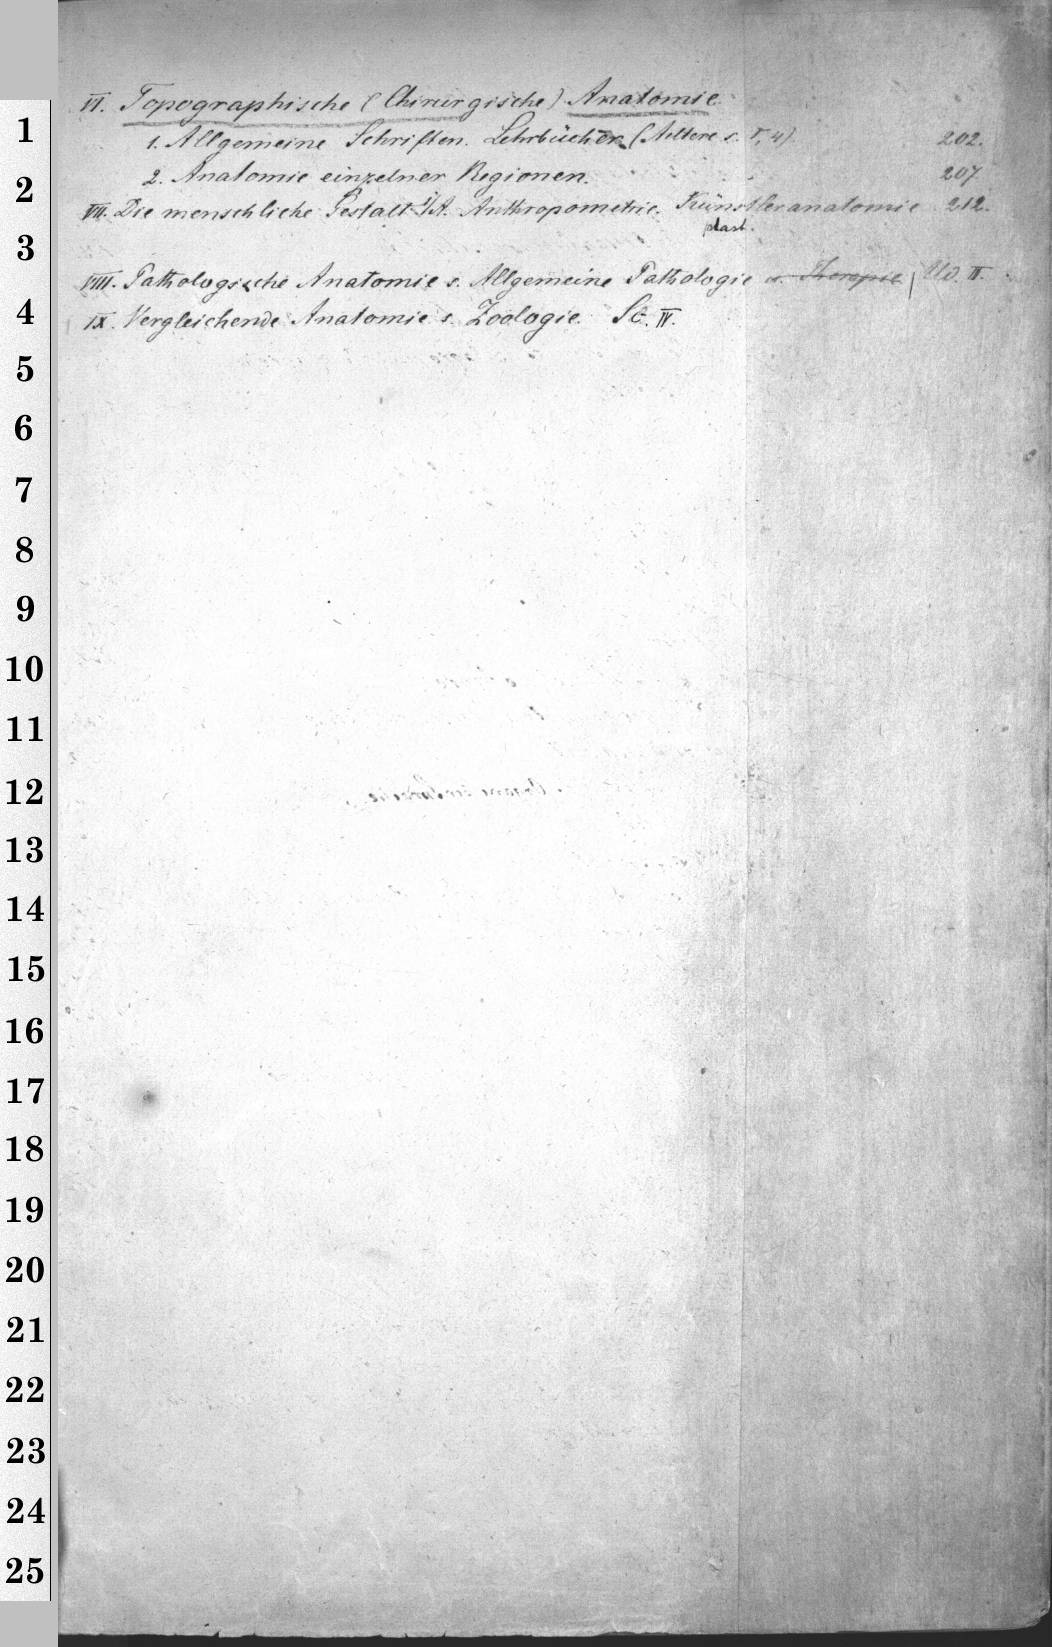 VI. Topographische (Chirurgische) Anatomie
1. Allgemeine Schriften. Lehrbücher (Aeltere s. V, 4) 202.
2. Anatomie einzelner Regionen. 207
VII. Die menschliche Gestalt. Anthropometrie. Künstleranatomie 212.
plast.
VIII. Pathologische Anatomie s. Allgemeine Pathologie u. Therapie Ud. II.
IX. Vergleichende Anatomie s. Zoologie. Sc. IV.
1
2
3
4
5
6
7
8
9
10
11
12
13
14
15
16
17
18
19
20
21
22
23
24
25